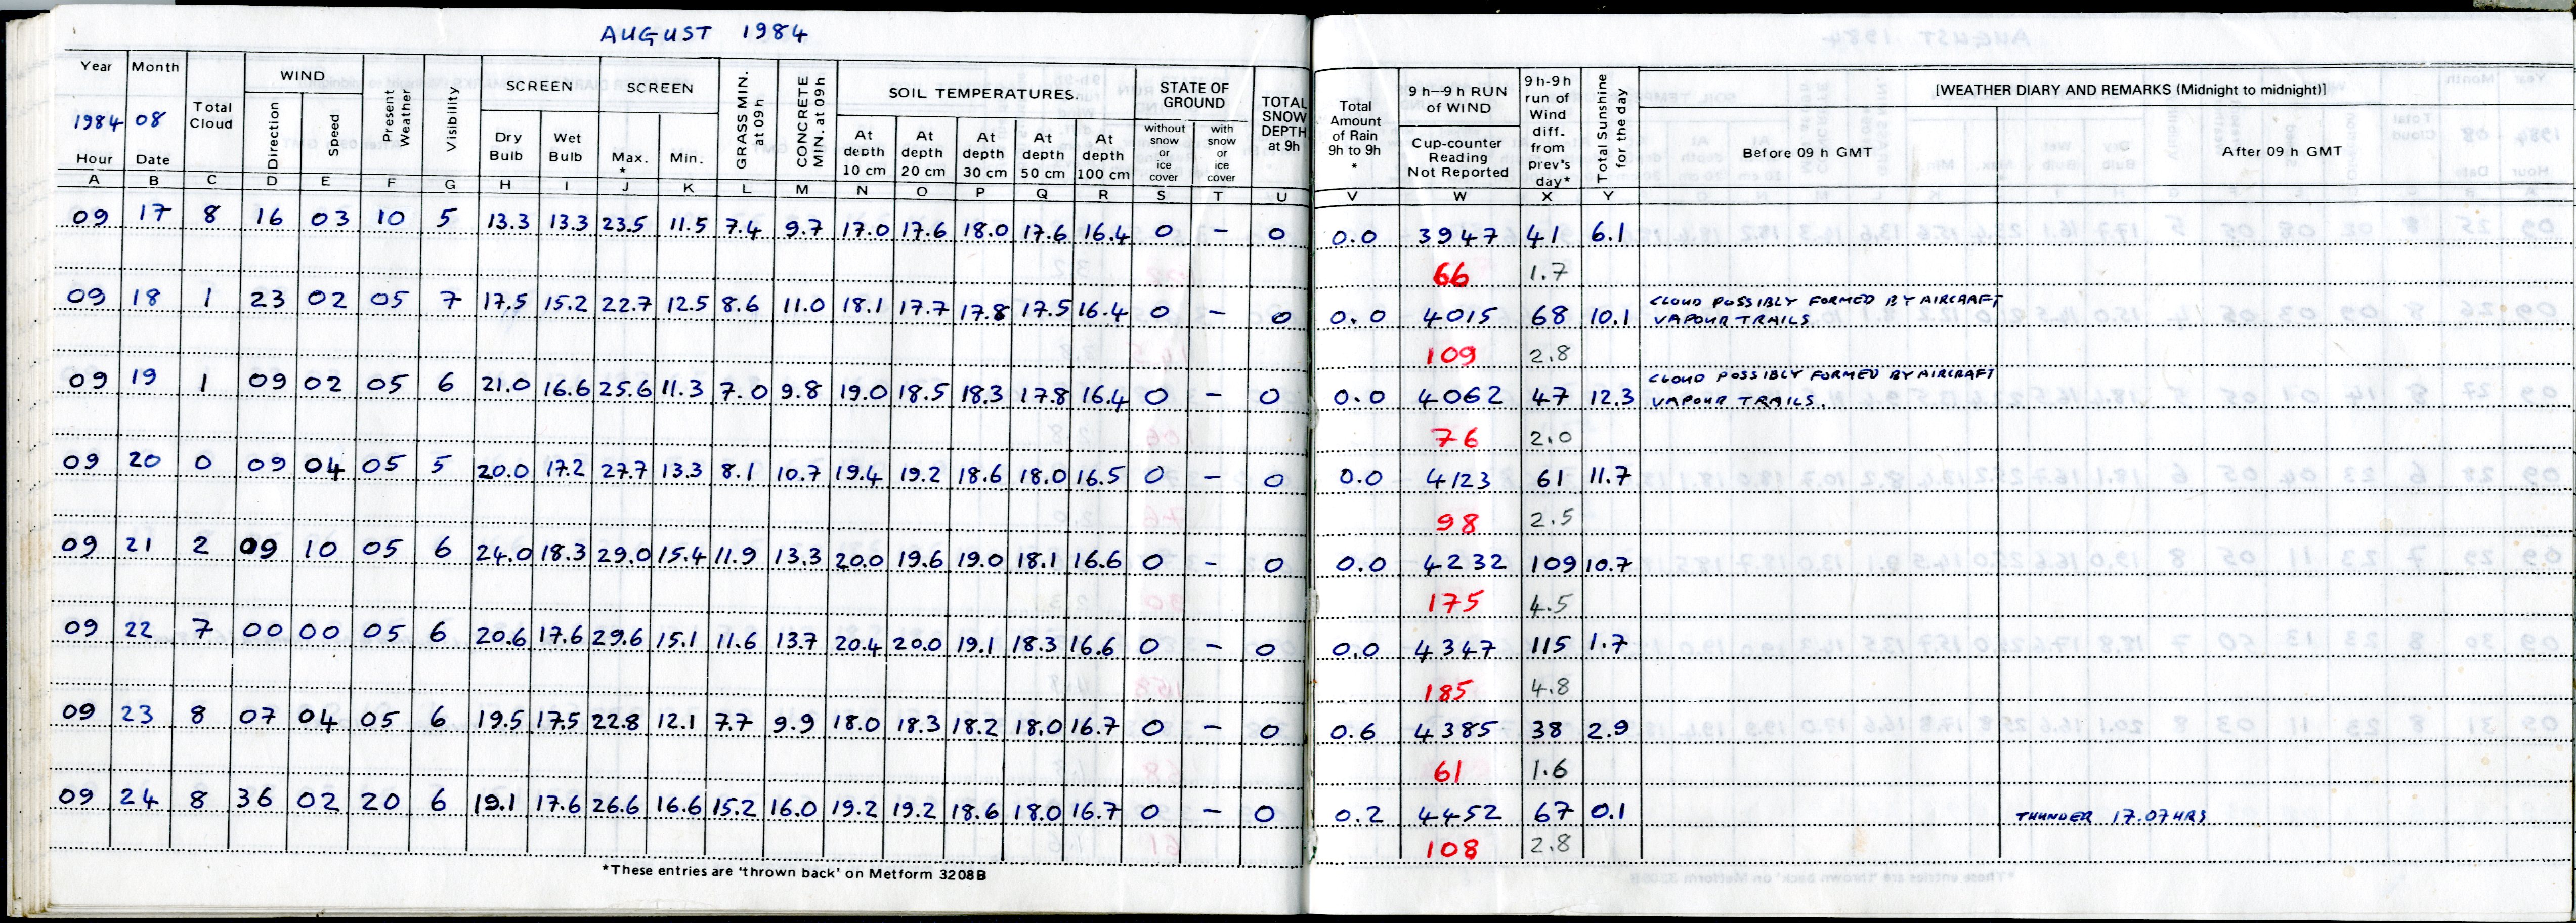 AUGUST 1984
Year Month Total Cloud WIND Present Weather Visibility SCREEN SCREEN GRASS MIN. at 09h CONCRETE MIN. at 09h SOIL TEMPERATURES. STATE OF GROUND TOTAL SNOW DEPTH at 9h Total Amount of Rain 9h to 9h * 9 h—9 h RUN of WIND 9 h-9 h run of Wind diff. from prev's day* Total Sunshine for the day [WEATHER DIARY AND REMARKS (Midnight to midnight)]
1984 08 Direction Speed Dry Bulb Wet Bulb Max. * Min. At depth 10 cm At depth 20 cm At depth 30 cm At depth 50 cm At depth 100 cm without snow or ice cover with snow or ice cover Cup-counter Reading Not Reported Before 09 h GMT After 09 h GMT
Hour Date
A B C D E F G H I J K L M N O P Q R S T U V W X Y
09 17 8 16 03 10 5 13.3 13.3 23.5 11.5 7.4 9.7 17.0 17.6 18.0 17.6 16.4 0 - 0 0.0 3947 41 6.1
66 1.7
09 18 1 23 02 05 7 17.5 15.2 22.7 12.5 8.6 11.0 18.1 17.7 17.8 17.5 16.4 0 - 0 0.0 4015 68 10.1 CLOUD POSSIBLY FORMED BY AIRCRAFT
VAPOUR TRAILS
109 2.8
09 19 1 09 02 05 6 21.0 16.6 25.6 11.3 7.0 9.8 19.0 18.5 18.3 17.8 16.4 0 - 0 0.0 4062 47 12.3 CLOUD POSSIBLY FORMED BY AIRCRAFT
VAPOUR TRAILS.
76 2.0
09 20 0 09 04 05 5 20.0 17.2 27.7 13.3 8.1 10.7 19.4 19.2 18.6 18.0 16.5 0 - 0 0.0 4123 61 11.7
98 2.5
09 21 2 09 10 05 6 24.0 18.3 29.0 15.4 11.9 13.3 20.0 19.6 19.0 18.1 16.6 0 - 0 0.0 4232 109 10.7
175 4.5
09 22 7 00 00 05 6 20.6 17.6 29.6 15.1 11.6 13.7 20.4 20.0 19.1 18.3 16.6 0 - 0 0.0 4347 115 1.7
185 4.8
09 23 8 07 04 05 6 19.5 17.5 22.8 12.1 7.7 9.9 18.0 18.3 18.2 18.0 16.7 0 - 0 0.6 4385 38 2.9
61 1.6
09 24 8 36 02 20 6 19.1 17.6 26.6 16.6 15.2 16.0 19.2 19.2 18.6 18.0 16.7 0 - 0 0.2 4452 67 0.1 THUNDER 17.07HRS
108 2.8
*These entries are 'thrown back' on Metform 3208B